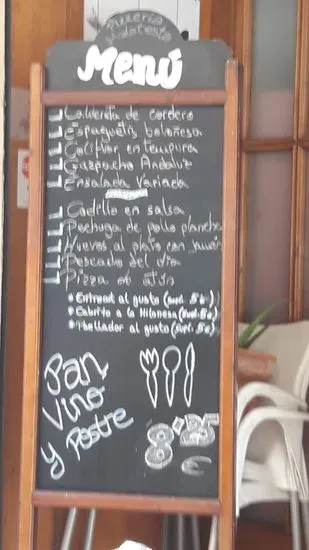 Pizzeria
Menú
Caldereta de cordero
Espaguetis boloñesa
Coliflor en tempura
Gazpacho Andaluz
Ensalada Variada
Codillo en salsa
Pechuga de pollo plancha
Huevos al plato con jamón
Pescado del día
Pizza de atún
• Entrecot al gusto (supl. 5€)
• Cabrito a la Milanesa (supl. 5€)
al gusto (supl. 5€)
Pan
Vino
y Postre
8'25
€